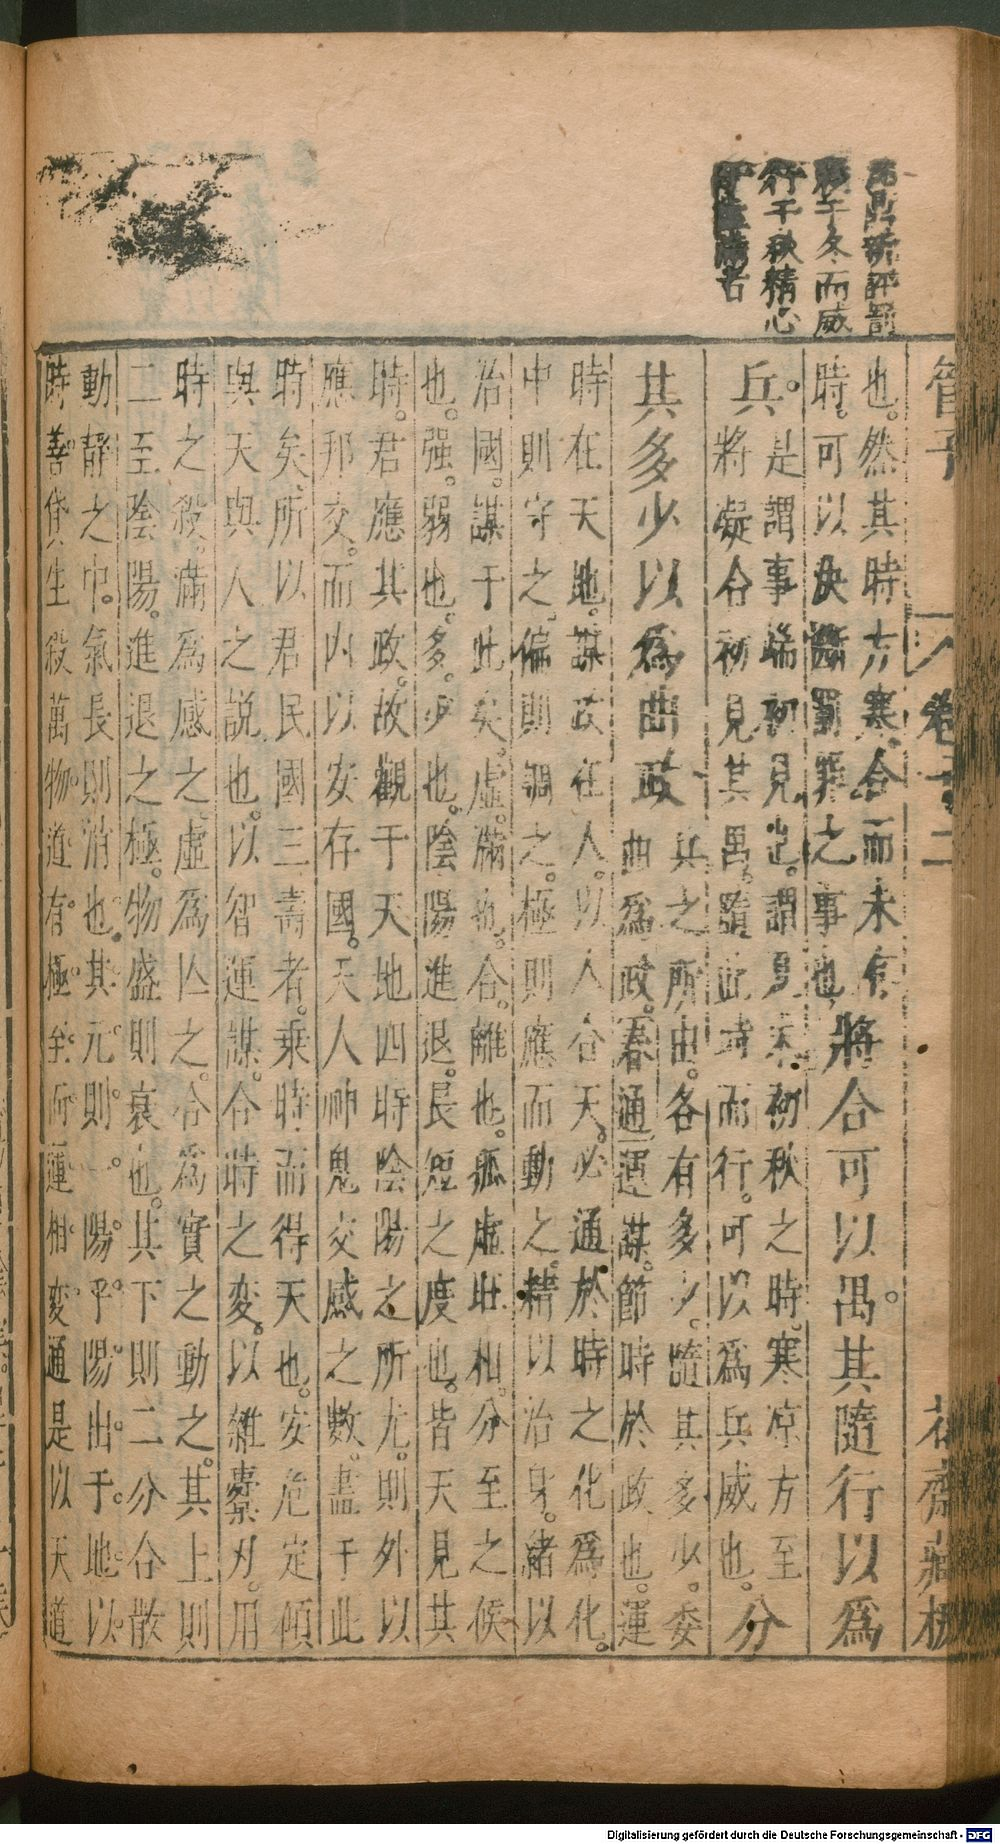 管子
卷十二
花齋藏板
行于秋精心
也。然其時方寒合而未
時。可以決斷罰罪之事也,將合可以禺。其隨行以爲
兵。是謂事端初見也。謂夏末初秋之時。寒凉方至
將凝合初見其禺。隨此時而行。可以爲兵威也。分
其多少以爲曲政 其之所由。各有多少。隨其多少。委
曲爲政。春通運謀。節時於政也。運
時在天地。謀政在人。以人合天。必通於時之化爲化。
中則守之。偏則調之。極則應而動之。精以治身。緒以
治國。謀于此矣。虛。滿也。合。離也。孤虛旺相。分至之候
也。强。弱也。多。少也。陰陽進退。長短之度也。皆天見其
時。君應其政。故觀于天地四時陰陽之所尤。則外以
應邦交。而內以安存國。天人神鬼交感之數。盡于此
時矣。所以君民國三壽者。乘時而得天也。安危定傾
與天與人之説也。以智運謀。合時之変。以雜橐刃。用
時之殺。滿爲感之。虛爲亾之。合爲實之動之。其上則
二至陰陽。進退之極。物盛則衰也。其下則二分合散
動靜之中。氣長則消也。其元則一。陽乎陽。出于地。以
時善。貸生殺萬物。道有極至所運相変通是以天道
Digitalisierung gefördert durch die Deutsche Forschungsgemeinschaft - DFG